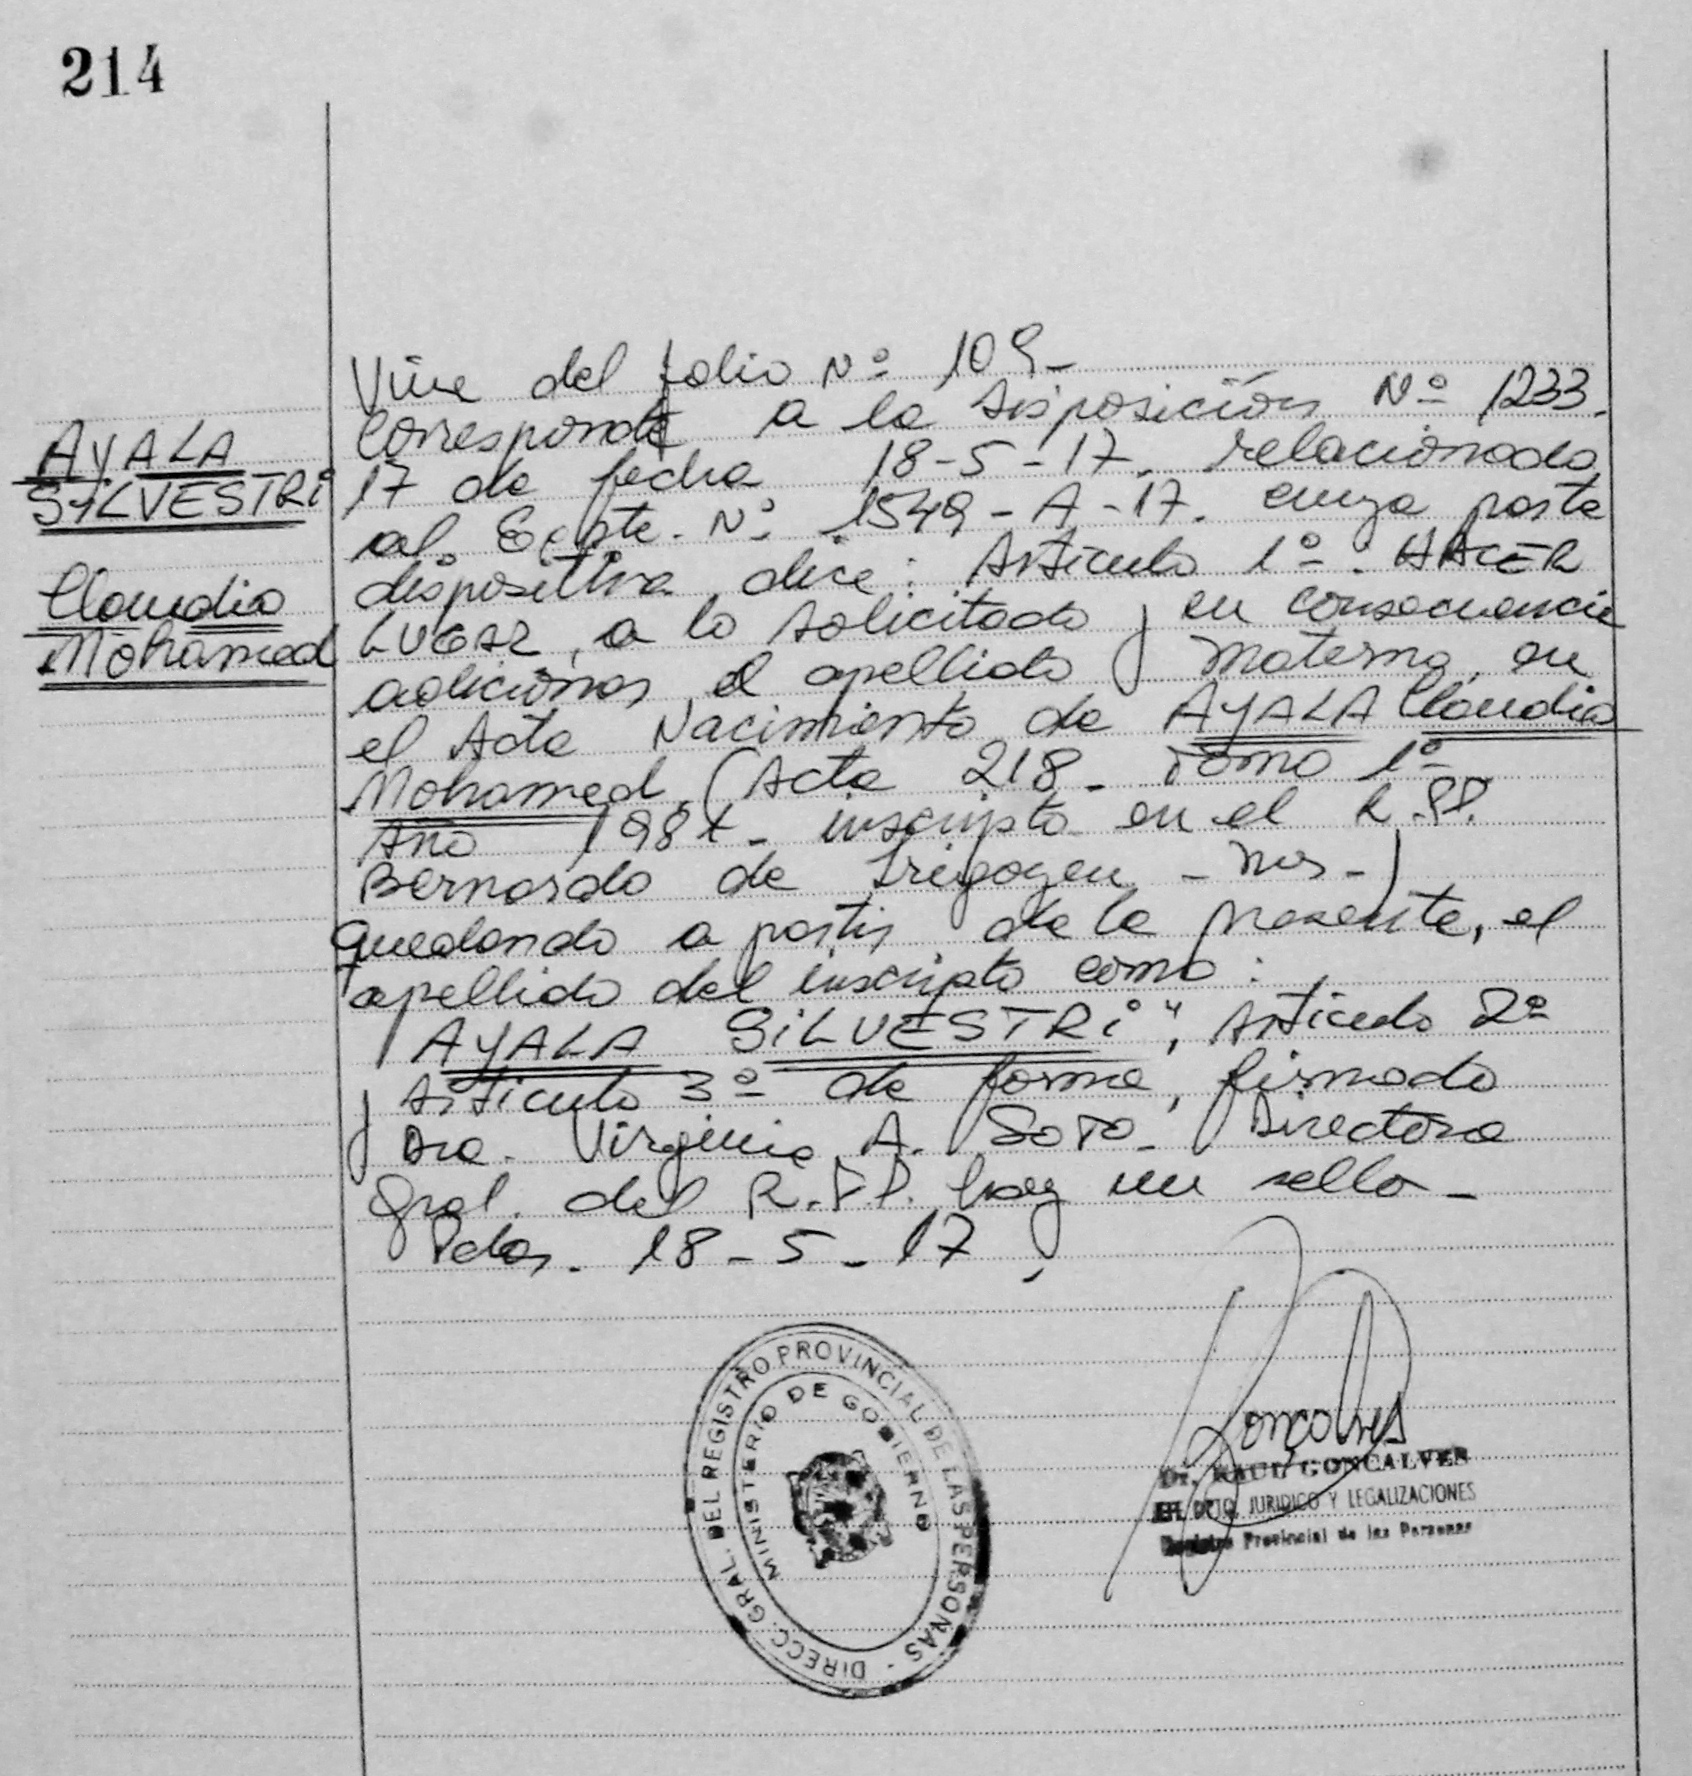 214
AYALA
SILVESTRi
Claudio
Mohamed
Viene del folio Nº 109-
Corresponde a la Disposición Nº 1233.
17 de fecha 18-5-17. relacionado
al Expte. Nº 1549-A-17. cuya parte
dispositiva dice: Artículo 1º. HACER
LUGAR, a lo solicitado y en consecuencia
adicionar el apellido materno en
el Acta Nacimiento de AYALA Claudio
Mohamed (Acta 218- Tomo 1º
Año 198 - inscripto en el R.P.P.
Bernardo de Irigoyen - Mnes-)
quedando a partir de la presente, el
apellido del inscripto como:
AYALA SiLVESTRi", Artículo 2º
y Artículo 3º de forma, firmado
Dra. Virginia A. Soto- Directora
Gral. del R.P.P. hay un sello-
Pdas. 18-5-17
DIRECC. GRAL. DEL REGISTRO PROVINCIAL DE LAS PERSONAS -
MINISTERIO DE GOBIERNO
Goncalves
Dr. RAUL GONCALVES
DPTO. JURIDICO Y LEGALIZACIONES
Registro Provincial de las Personas